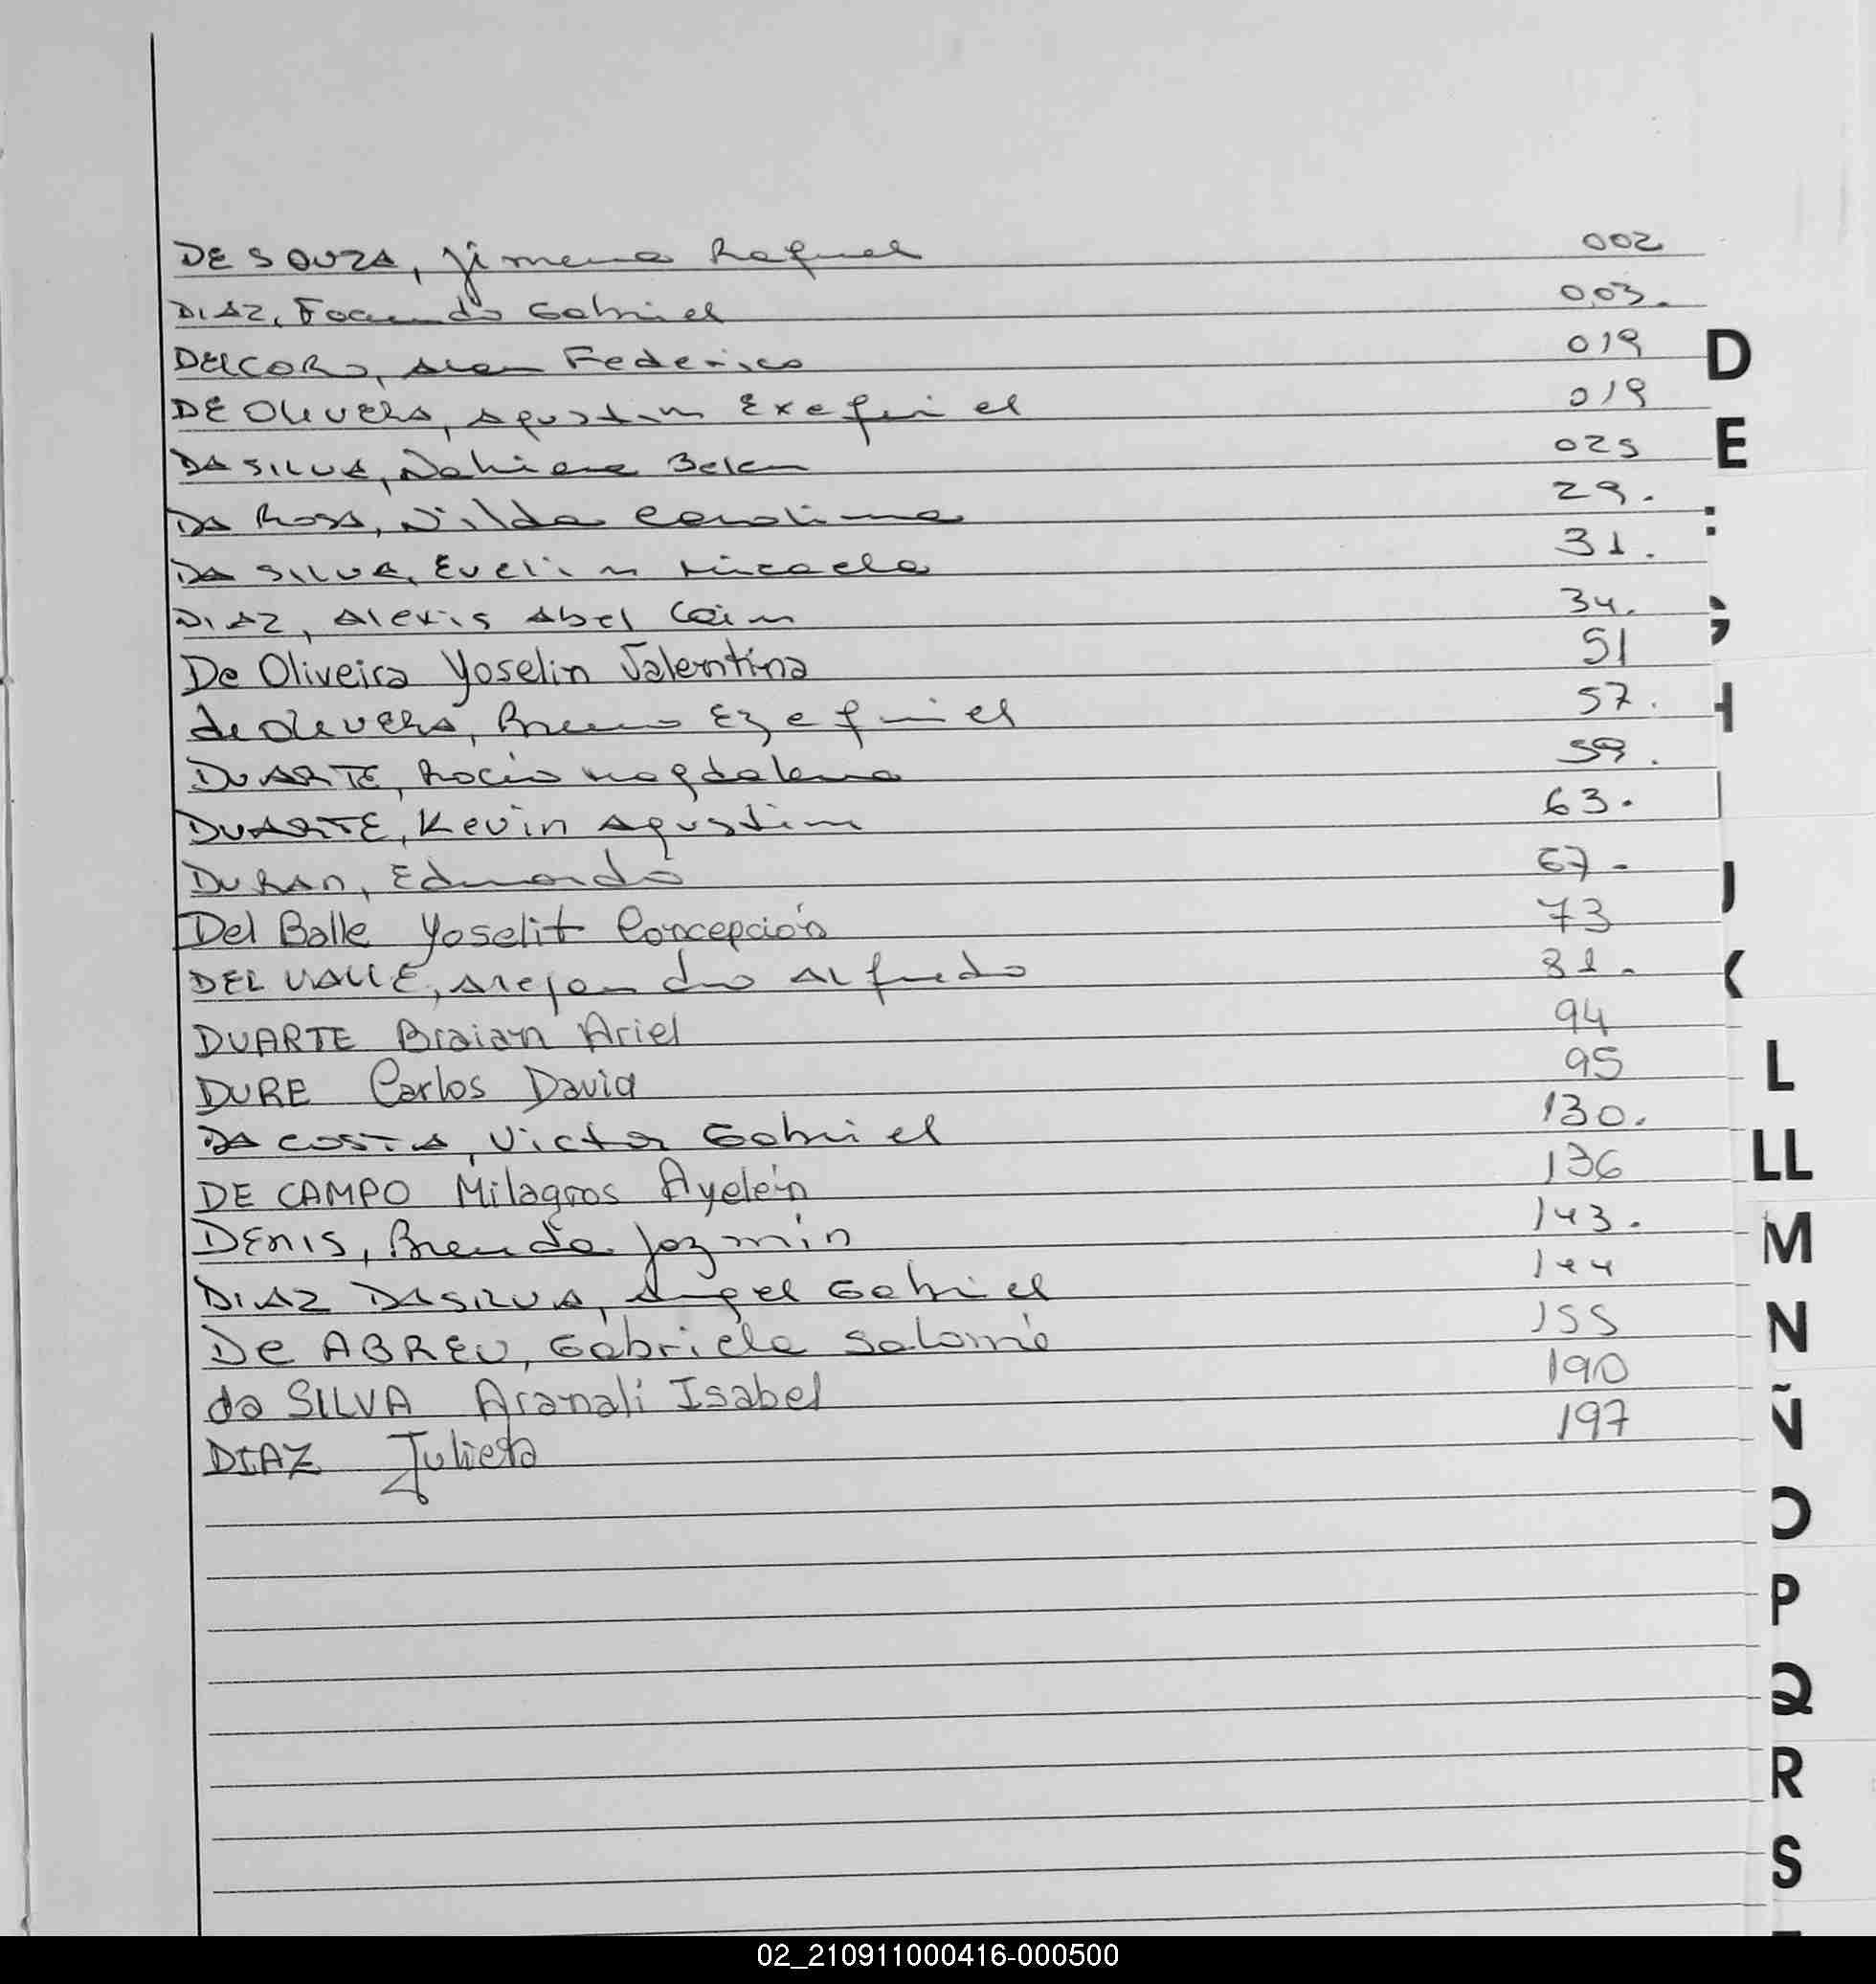 DE SOUZA, Jimena Raquel 002
DIAZ, Facundo Gabriel 003.
DELCORO, Alan Federico 019
DE OLIVERA, Agustin Exequiel 019
DA SILVA, Nahiara Belen 025
DA ROSA, Nilda Carolina 29.
DA SILVA, Evelin Micaela 31.
DIAZ, Alexis Abel Cain 34.
De Oliveira Yoselin Valentina 51
de OLIVERA, Bruno Ezequiel 57.
DUARTE, Rocio Magdalena 59.
DUARTE, Kevin Agustin 63.
DURAN, Eduardo 67.
Del Balle Yoselit Concepción 73
DEL VALLE, Alejandro Alfredo 81.
DUARTE Braian Ariel 94
DURE Carlos David 95
DA COSTA, Victor Gabriel 130.
DE CAMPO Milagros Ayelén 136
DENIS, Brenda Jazmin 143.
DIAZ DASILVA, Angel Gabriel 144
De ABREU, Gabriela Salomé 155
da SILVA Aranali Isabel 190
DIAZ Julieta 197
D
E
:
;
H
I
J
K
L
LL
M
N
Ñ
O
P
Q
R
S
02_210911000416-000500